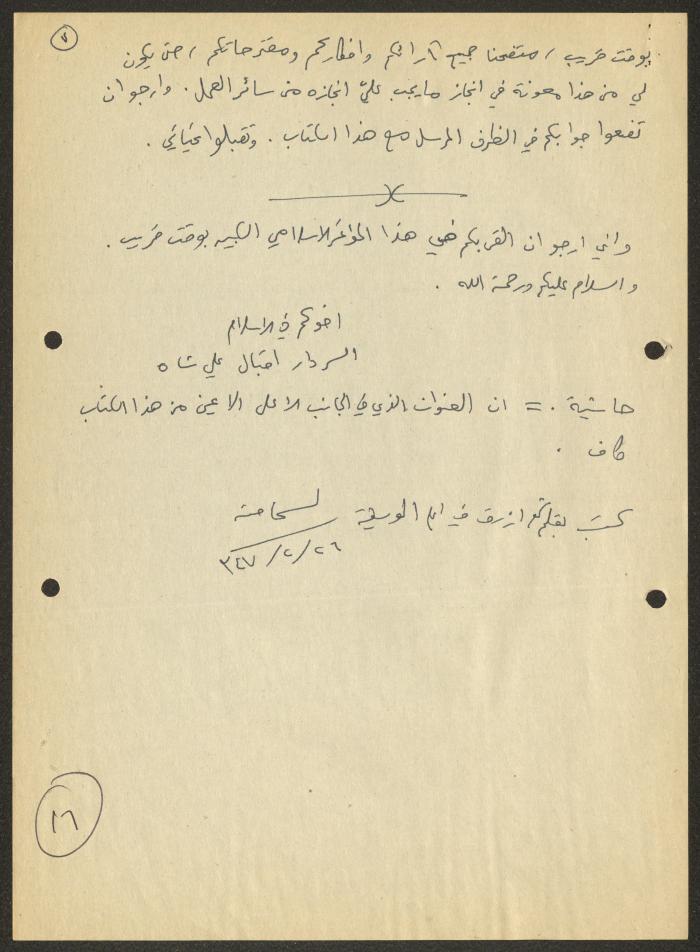 ٧
بوقت قريب ، متضمنا جميع آرائكم وافكاركم ومقترحاتكم ، حتى يكون
لي من هذا معونة في انجاز ما يجب عليّ انجازه من سائر العمل . وارجو ان
تضعوا جوابكم في الظرف المرسل مع هذا الكتاب . وتقبلوا تحياتي .
واني ارجو ان القى بكم في هذا المؤتمر الاسلامي الكبير بوقت قريب .
والسلام عليكم ورحمة الله .
اخوكم في الاسلام
السردار اقبال علي شاه
حاشية . = ان العنوان الذي في الجانب الاعلى الايمن من هذا الكتاب
كاف .
كتب بقلم ازرق في الوسيقة لسماحته
٢٦/٢/٣٤٧
١٦